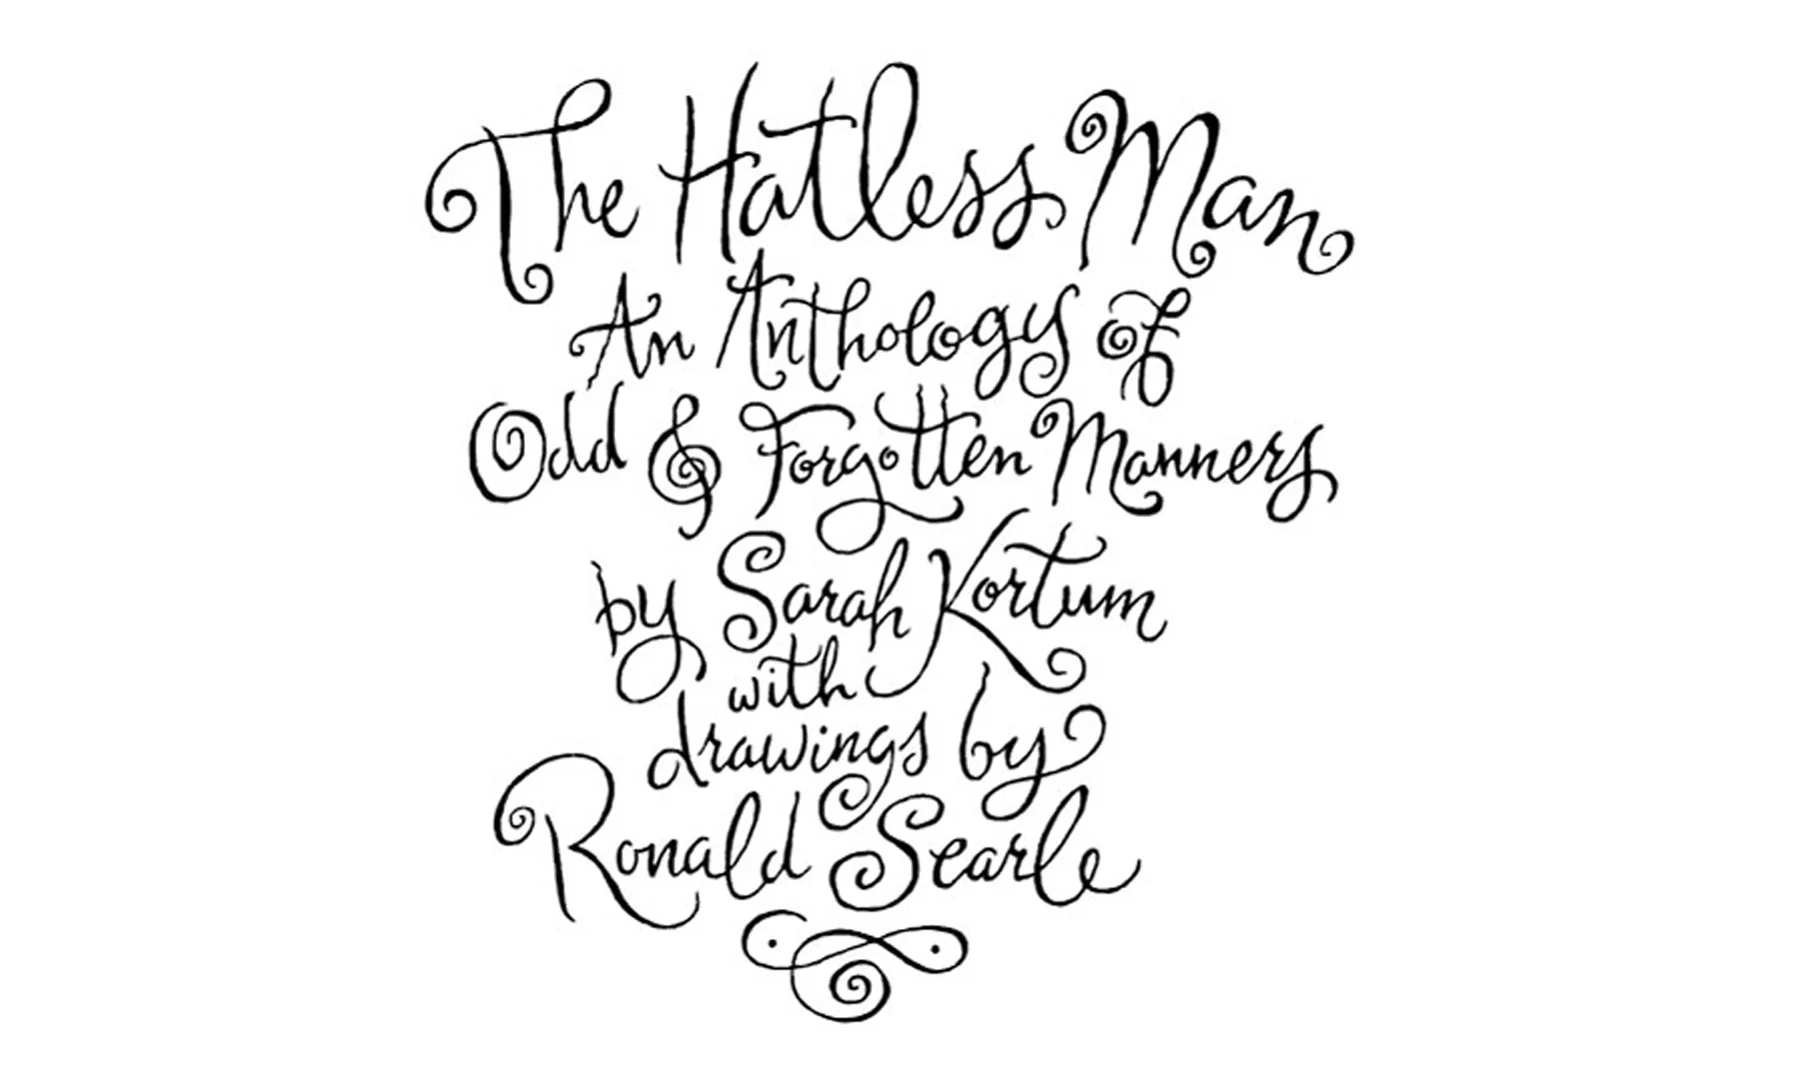 The Hatless Man
An Anthology of
Odd & Forgotten Manners
by Sarah Kortum
with
drawings by
Ronald Searle